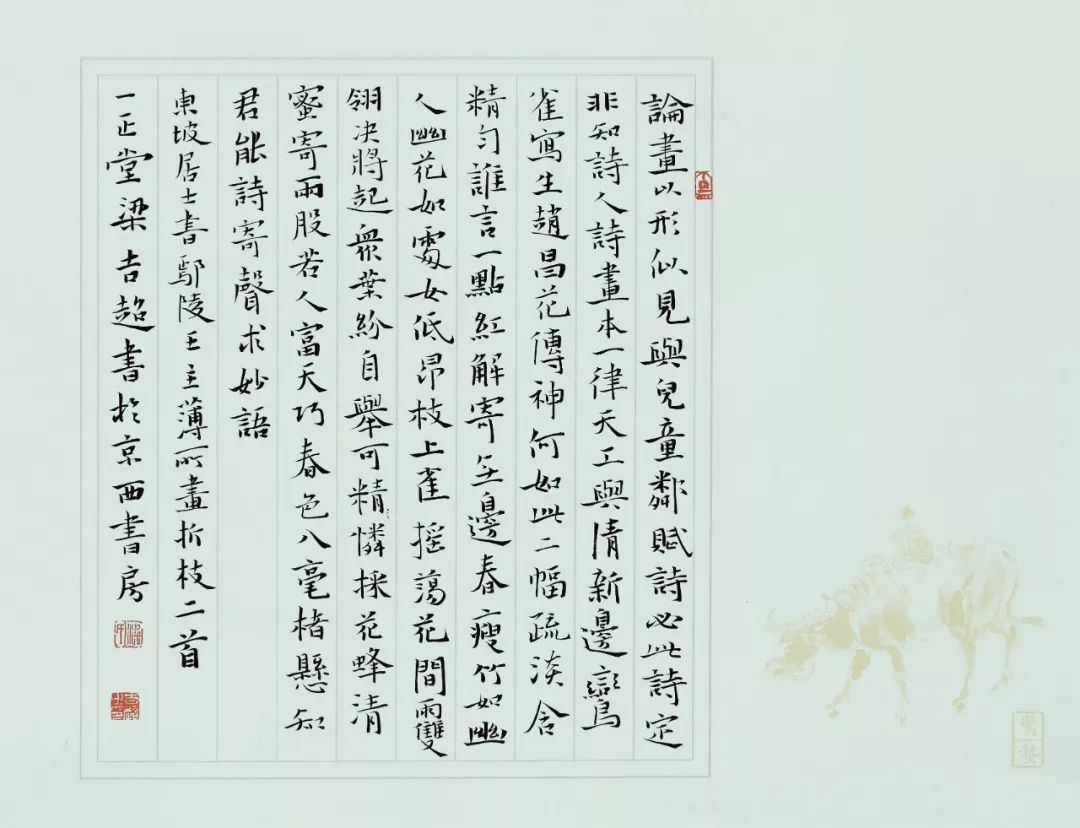 論畫以形似見與兒童鄰賦詩必此詩定
非知詩人詩畫本一律天工與清新邊鸞
雀寫生趙昌花傳神何如此二幅疏淡含
精匀誰言一點紅解寄無邊春瘦竹如幽
人幽花如處女低昂枝上雀摇蕩花間雨雙
翎决將起衆葉紛自舉可精憐採花蜂清
蜜寄兩股若人富天巧春色入毫楮懸知
君能詩寄聲求妙語
東坡居士書鄢陵王主薄所畫折枝二首
一正堂梁吉超書於京西書房
驚蟄